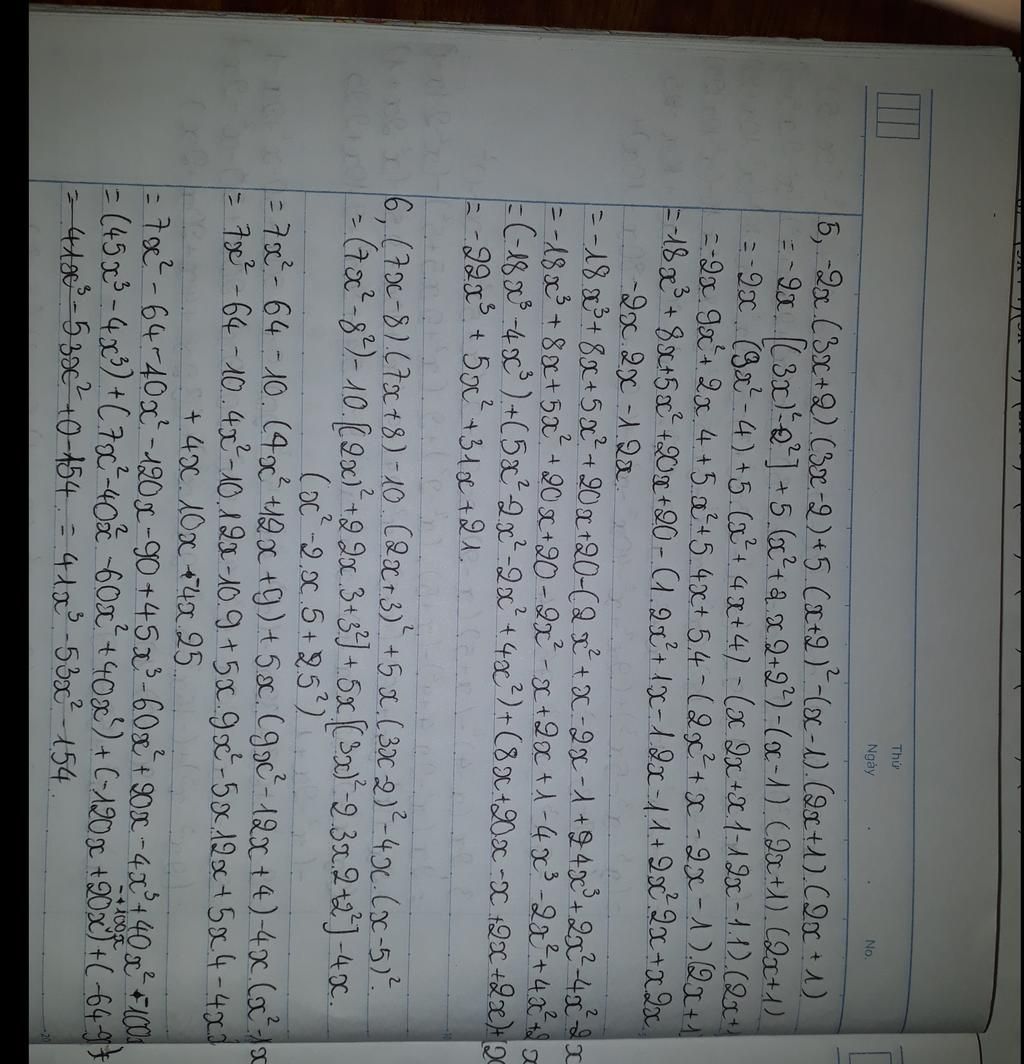 Thứ
Ngày . . No.
5, -2x.(3x+2)(3x-2)+5.(x+2)²-(x-1).(2x+1).(2x+1)
= -2x.[(3x)²-2²]+5.(x²+2.x.2+2²)-(x-1).(2x+1).(2x+1)
= -2x.(9x²-4)+5.(x²+4x+4)-(x.2x+x.1-1.2x-1.1).(2x+
= -2x.9x²+2x.4+5.x²+5.4x+5.4-(2x²+x-2x-1).(2x+1
= -18x³+8x+5x²+20x+20-(1.2x²+1x-1.2x-1.1+2x².2x+x.2x
-2x.2x-1.2x
= -18x³+8x+5x²+20x+20-(2x²+x-2x-1+4x³+2x²-4x²-2x
= -18x³+8x+5x²+20x+20-2x²-x+2x+1-4x³-2x²+4x²+2x
= (-18x³-4x³)+(5x²-2x²-2x²+4x²)+(8x+20x-x+2x+2x)+(
= -22x³+5x²+31x+21.
6, (7x-8)(7x+8)-10.(2x+3)²+5x.(3x-2)²-4x.(x-5)².
= (7x²-8²)-10.[(2x)²+2.2x.3+3²]+5x[(3x)²-2.3x.2+2²]-4x.
(x²-2.x.5+25²)
= 7x²-64-10.(4x²+12x+9)+5x.(9x²-12x+4)-4x(x²-1
= 7x²-64-10.4x²-10.12x-10.9+5x.9x²-5x.12x+5x.4-4x
+4x.10x-4x.25
= 7x²-64-40x²-120x-90+45x³-60x²+20x-4x³+40x²-100
= (45x³-4x³)+(7x²-40x²-60x²+40x²)+(-120x+20x-100x)+(-64-9
= 41x³-53x²+0-154 = 41x³-53x²-154.